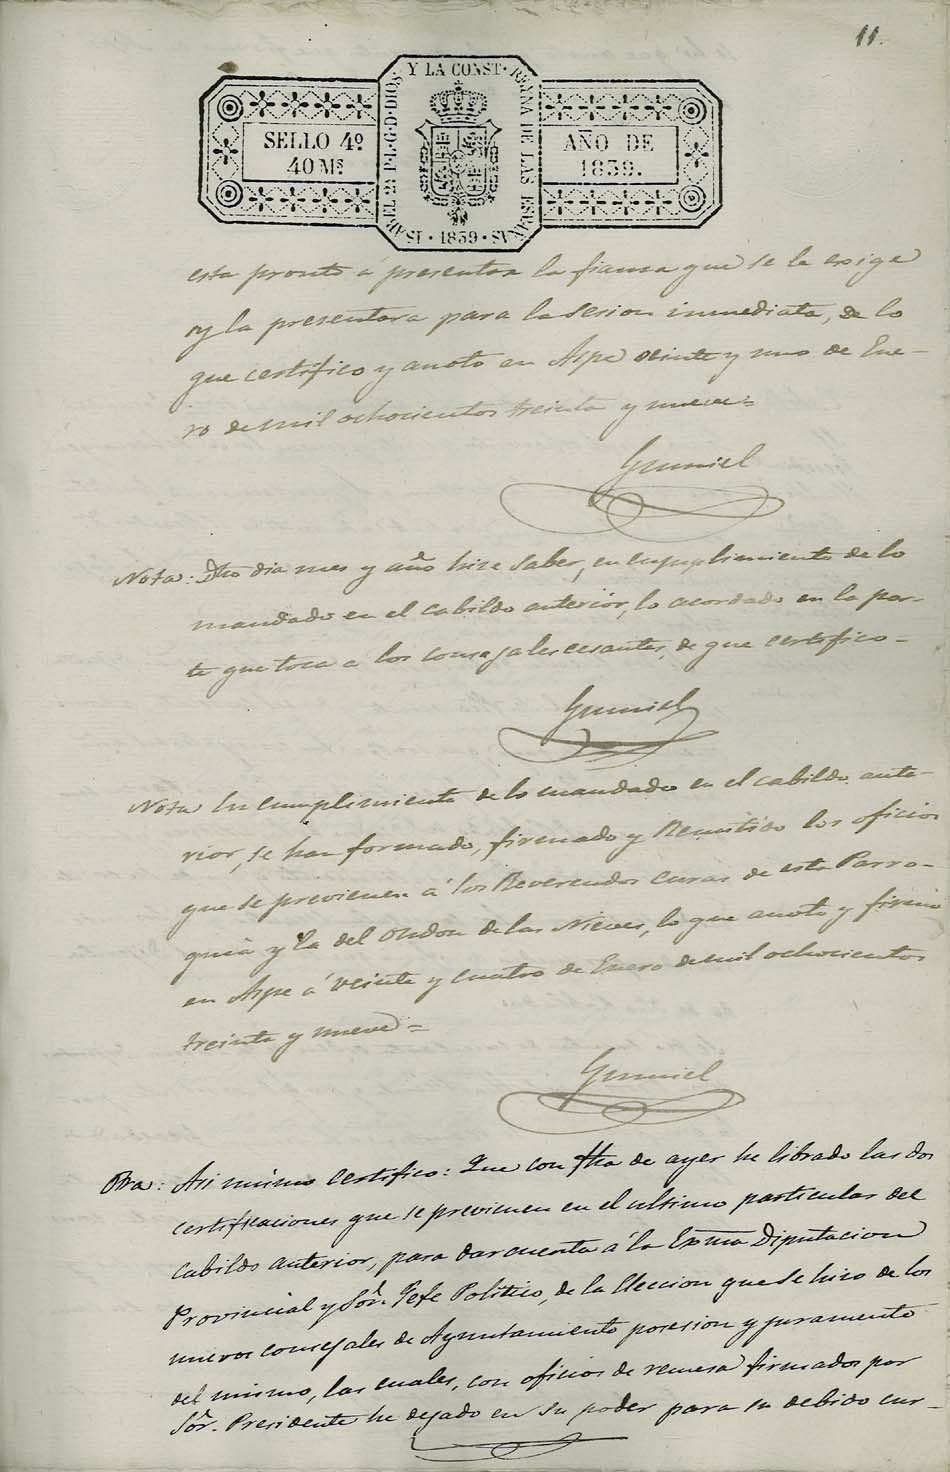 11.
SELLO 4º
40 Mˢ
ISABEL 2ª P·L·G·D·DIOS Y LA CONST· REYNA DE LAS ESPAÑAS
· 1839 ·
AÑO DE
1839.
esta pronto á presentar la fianza que se le exige
y la presentara para la sesion inmediata, de lo
que certifico y anoto en Aspe veinte y uno de Ene-
ro de mil ochocientos treinta y nueve=
Gumiel
Nota: Dho dia mes y año hize saber, en cumplimiento de lo
mandado en el cabildo anterior, lo acordado en la par-
te que toca a los consejales cesantes, de que certifico-
Gumiel
Nota En cumplimiento de lo mandado en el cabildo ante-
rior, se han formado, firmado y Remitido los oficios
que se previenen á los Reverendos curas de esta Parro-
quia y la del Ondon de las Nieves, lo que anoto y firmo
en Aspe á veinte y cuatro de Enero de mil ochocientos
treinta y nueve=
Gumiel
Otra: Asi mismo certifico: Que con fha de ayer he librado las dos
certificaciones que se previenen en el ultimo particular del
cabildo anterior, para dar cuenta á la Exma Diputacion
Provincial y Sor. Jefe Politico, de la Eleccion que se hizo de los
nuevos consejales de Ayuntamiento posesion y juramento
del mismo, las cuales, con oficios de remesa firmados por
Sor. Presidente he dejado en su poder para su debido cur-